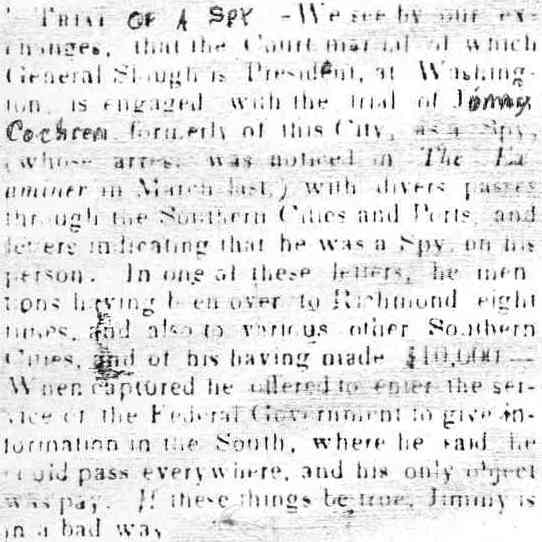 TRIAL OF A SPY - We see by our ex-
changes, that the Court martial of which
General Slough is President, at Washing-
ton, is engaged with the trial of Jimmy
Cochren formerly of this City, as a Spy,
(whose arrest was noticed in The Ex-
aminer in March last,) with divers passes
through the Southern Cities and Ports, and
letters indicating that he was a Spy, on his
person. In one of these letters, he men
tions having been over to Richmond eight
times, and also to various other Southern
Cities, and of his having made $10,000 —
When captured he offered to enter the ser-
vice of the Federal Government to give in-
formation in the South, where he said he
could pass everywhere, and his only object
was pay. If these things be true, Jimmy is
in a bad way